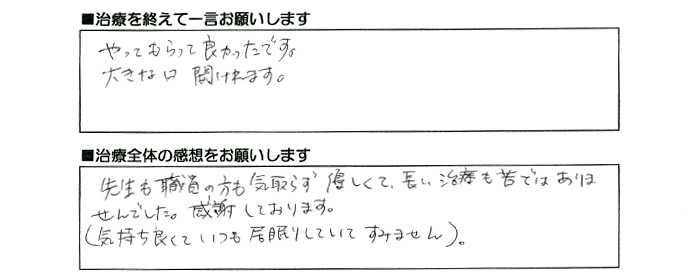 ■治療を終えて一言お願いします
やってもらって良かったです。
大きな口 開けれます。
■治療全体の感想をお願いします
先生も職員の方も気取らず優しくて、長い治療も苦ではありま
せんでした。感謝しております。
(気持ち良くていつも居眠りしていてすみません)。